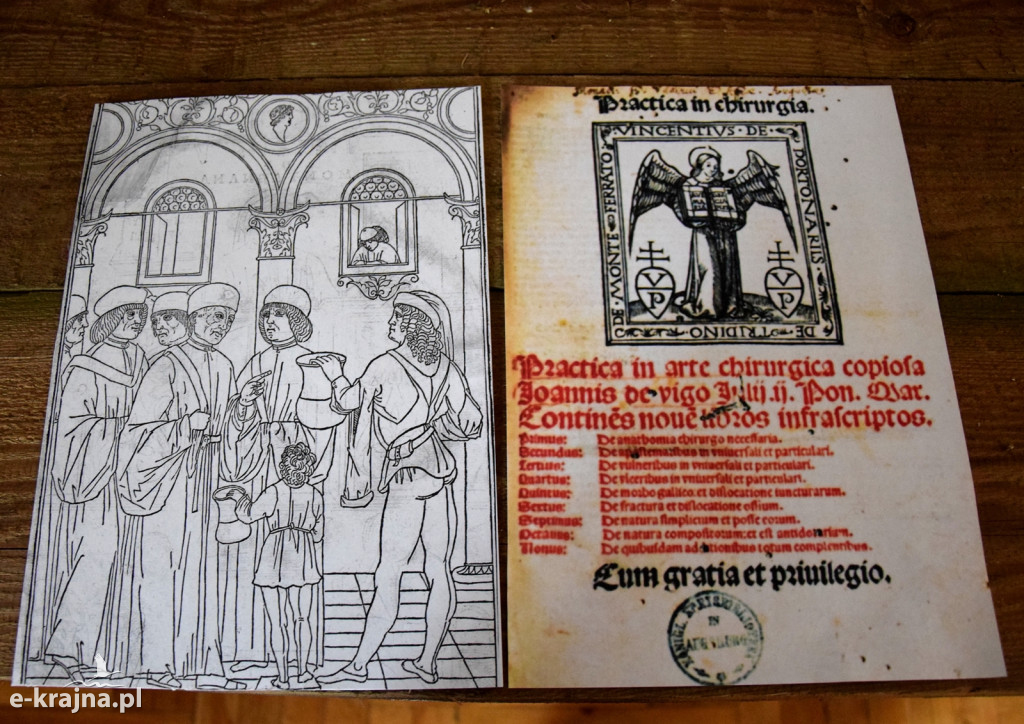 Practica in chirurgia.
VINCENTIVS · DE ·
PORTONARIIS ·
DE · TRIDINO
DE · MONTE · FERRATO ·
VP
VP
Practica in arte chirurgica copiosa
Joannis de vigo Julij .ij. Pon. Mar.
Continēs nouē libros infrascriptos.
Primus: De anathomia chirurgo necessaria.
Secundus: De apostematibus in vniuersali et particulari.
Tertius: De vulneribus in vniuersali et particulari.
Quartus: De vlceribus in vniuersali et particulari.
Quintus: De morbo gallico, et dislocatione iuncturarum.
Sextus: De fractura et dislocatione ossium.
Septimus: De natura simplicium et posse eorum.
Octauus: De natura compositorum; et est antidotarium.
Nonus: De quibusdam additionibus totum complentibus.
Cum gratia et priuilegio.
IN
e-krajna.pl